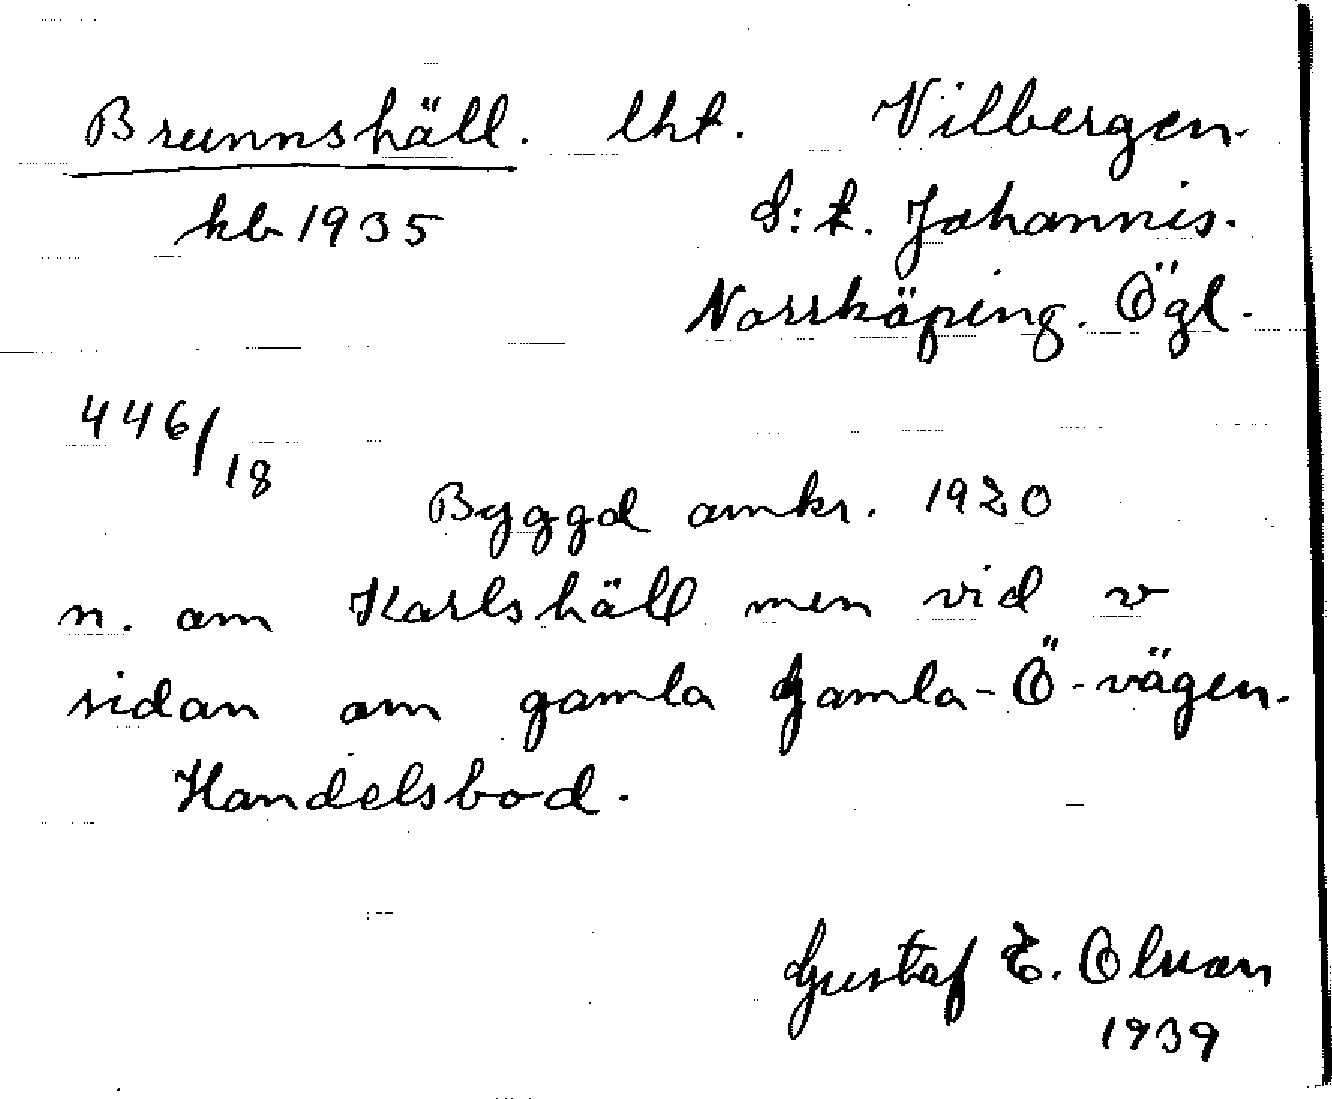 Brunnshäll. lht. Vilbergen.
kb 1935 S:t. Johannis.
Norrköping. Ögl.
446/18
Byggd omkr. 1920
n. om Karlshäll men vid v
sidan om gamla Gamla-Ö-vägen.
Handelsbod.
Gustaf E. Olson
1939